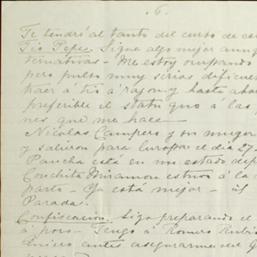 6.
Te tendré al tanto del curso de es
Tío Pepe. Sigue algo mejor aunq
ternativas - Me estoy ocupando
pero pulso muy serias dificul
traer á tió á razon y hasta aho
preferible el statu quo á las
nes que me hace -
Nicolas Campero y su muger
y salieron para Europa el dia 27
Pancha está en mi estado desp
Conchita Miramon estuvo á la
parto - Ya está mejor - if
Parada.
Confiscacion. Sigo preparando el
á Romero Rubi
quiero antes asegurarme de q